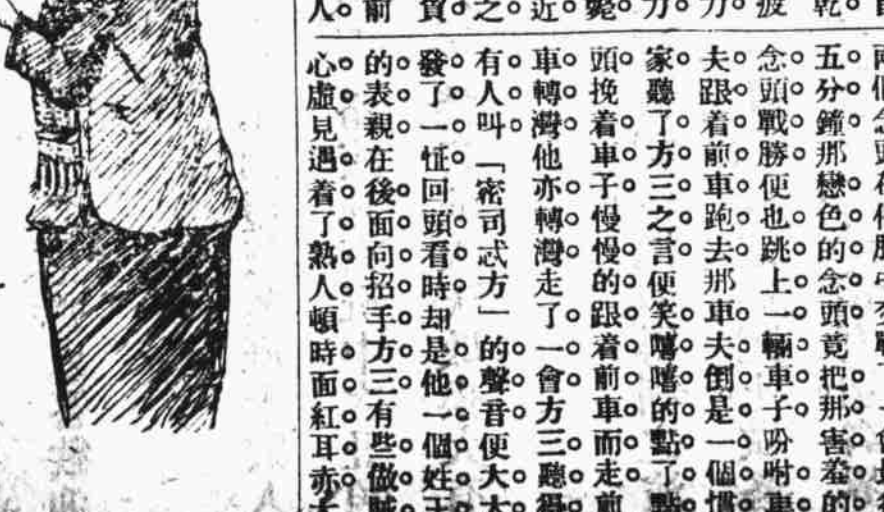 五分鐘那戀色的念頭竟把那害羞的
念頭戰勝便也跳上一輛車子吩咐車
夫跟着前車跑去那車夫倒是一個慣
家聽了方三之言便笑嘻嘻的點了點
頭挽着車子慢慢的跟着前車而走前
車轉灣他亦轉灣走了一會方三聽得
有人叫「密司忒方」的聲音便大大
發了一怔回頭看時却是他一個姓王
的表親在後面向招手方三有些做賊
心虛見遇着了熟人頓時面紅耳赤